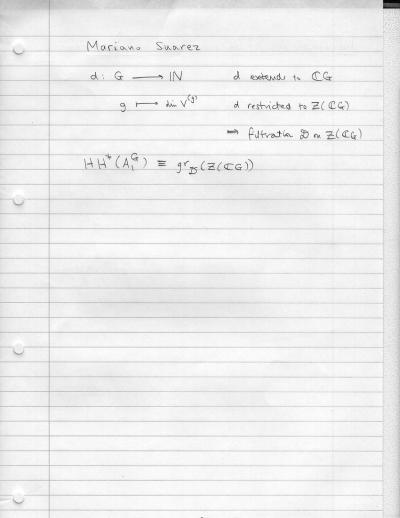 Mariano Suarez
d: G ⟶ ℕ d extends to ℂG
g ⟼ dim V^(g) d restricted to Z(ℂG)
⟹ filtration 𝒟 on Z(ℂG)
HH*(A₁^G) ≡ gr_𝒟(Z(ℂG))